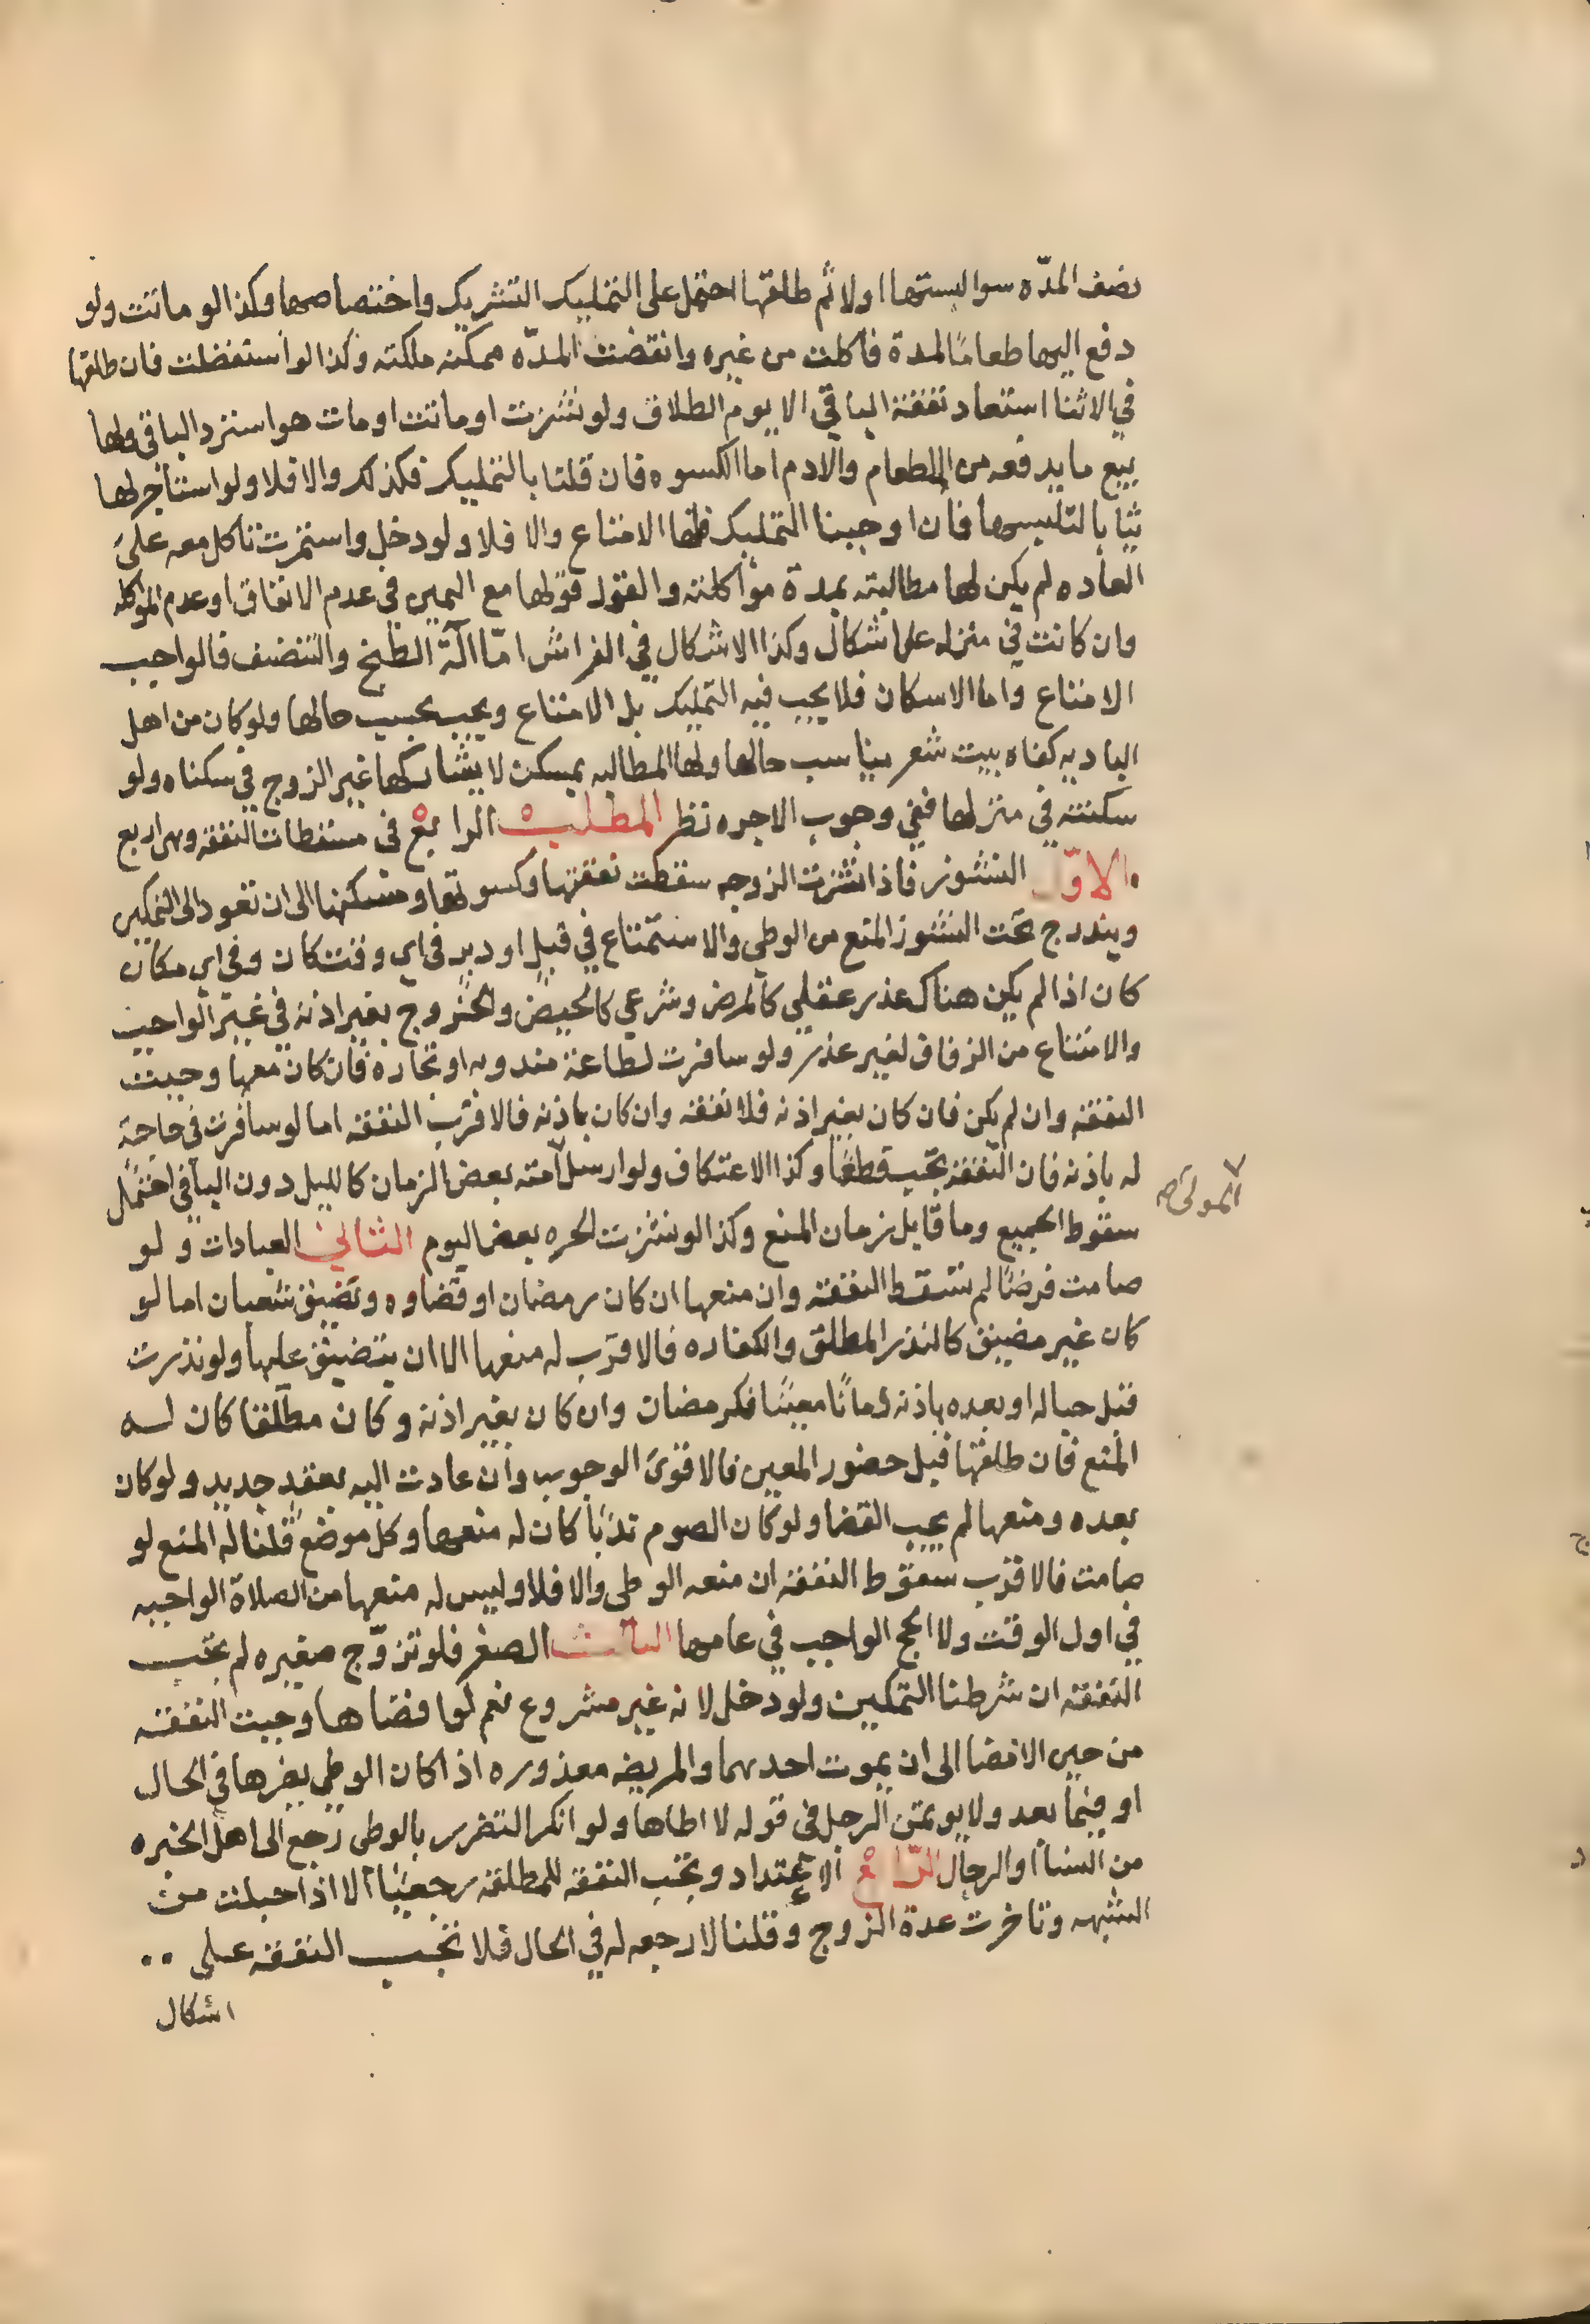 نصف المدّه سوا لبستها اولا ثم طلقها احتمل على التمليك التشريك واختصاصها وكذا لو ماتت ولو
دفع اليها طعامًا لمدة فاكلت من غيره وانقضت المدّه ممكنه ملكته وكذا لو استفضلت فان طلقها
في الاثنا استعاد نفقة الباقي الا يوم الطلاق ولو نشزت او ماتت او مات هو استرد الباقي ولها
بيع ما يدفعه من الطعام والادم اما الكسوه فان قلنا بالتمليك فكذلك والا فلا ولو استاجر لها
ثيابا لتلبسها فان اوجبنا التمليك فلها الامتناع والا فلا ولو دخل واستمرت تاكل معه على
العاده لم يكن لها مطالبته بمدة مؤاكلته والقول قولها مع اليمين في عدم الانفاق او عدم المواكله
وان كانت في منزله على اشكال وكذا الاشكال في الفراش امّا آلة الطبخ والتنضف فالواجب
الامتناع واما الاسكان فلا يجب فيه التمليك بل الامتناع ويجب بحسب حالها ولو كان من اهل
الباديه كفاه بيت شعر يناسب حالها ولها المطالبه بمسكن لا يشاركها غير الزوج في سكناه ولو
سكنته في منزلها ففي وجوب الاجره نظر المطلب الرابع في مسقطات النفقه وهي اربع
الاوّل النشوز فاذا نشزت الزوجه سقطت نفقتها وكسوتها ومسكنها الى ان تعود الى التمكين
ويندرج تحت النشوز المنع من الوطي والاستمتاع في قبل او دبر في اي وقت كان وفي اي مكان
كان اذا لم يكن هناك عذر عقلي كالمرض وشرعي كالحيض والخروج بغير اذنه في غير الواجب
والامتناع من الزفاف لغير عذر ولو سافرت لطاعة مندوبه او تجاره فان كان معها وجبت
النفقه وان لم يكن فان كان بغير اذنه فلا نفقه وان كان باذنه فالاقرب النفقه اما لو سافرت في حاجة
له باذنه فان النفقه تجب قطعًا وكذا الاعتكاف ولو ارسل امته بعض الزمان كالليل دون الباقي احتمل
المولى صح
سقوط الجميع وما قابل زمان المنع وكذا لو نشزت الحره بعض اليوم الثاني العبادات ولو
صامت فرضًا لم تسقط النفقه وان منعها ان كان رمضان او قضاوه وتضيق شعبان اما لو
كان غير مضيق كالنذر المطلق والكفاره فالاقرب له منعها الا ان يتضيق عليها ولو نذرت
قبل حباله او بعده باذنه زمانًا معينًا فكرمضان وان كان بغير اذنه وكان مطلقا كان له
المنع فان طلقها قبل حضور المعين فالاقوى الوجوب وان عادت اليه بعقد جديد ولو كان
بعده ومنعها لم يجب القضا ولو كان الصوم ندبًا كان له منعها وكل موضع قلنا له المنع لو
صامت فالاقرب سقوط النفقه ان منعه الوطى والا فلا وليس له منعها من الصلاة الواجبه
في اول الوقت ولا الحج الواجب في عامها الثالث الصغر فلو تزوّج صغيره لم تجب
النفقه ان شرطنا التمكين ولو دخل لانه غير مشروع نعم لو افضاها وجبت النفقه
من حين الافضا الى ان يموت احدهما والمريضه معذوره اذا كان الوطى يضرها في الحال
او فيما بعد ولا يوتمن الرجل في قوله لا اطاها ولو انكر التضرر بالوطى رجع الى اهل الخبره
من النسا او الرجال الرابع الاعتداد وتجب النفقه للمطلقه رجعيًا الا اذا حبلت من
الشبهه وتاخرت عدة الزوج وقلنا لا رجعه له في الحال فلا تجب النفقه على ..
اشكال